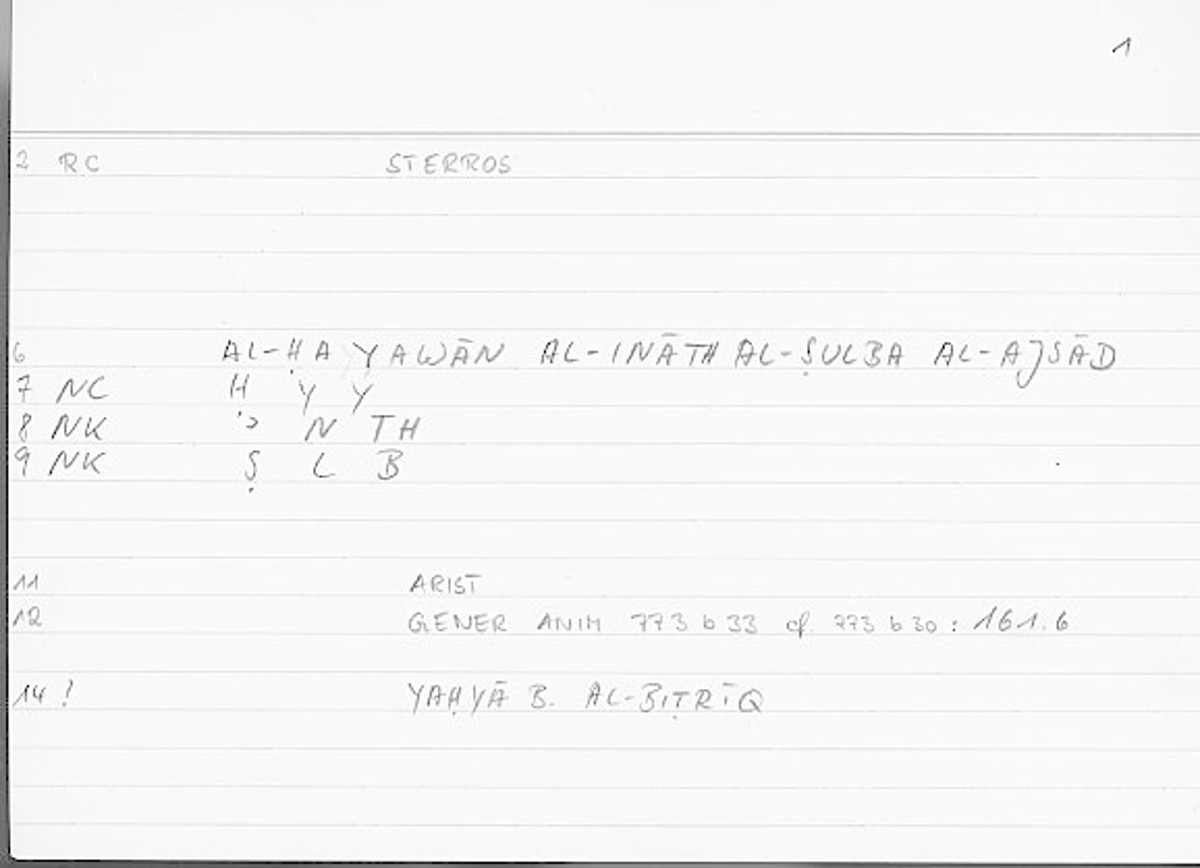 1
2 RC STERROS
6 AL-ḤAYAWĀN AL-INĀTH AL-ṢULBA AL-AJSĀD
7 NC H Y Y
8 NK ʾ N TH
9 NK Ṣ L B
11 ARIST
12 GENER ANIM 773 b 33 cf. 773 b 30 : 161.6
14 ? YAḤYĀ B. AL-BIṬRĪQ